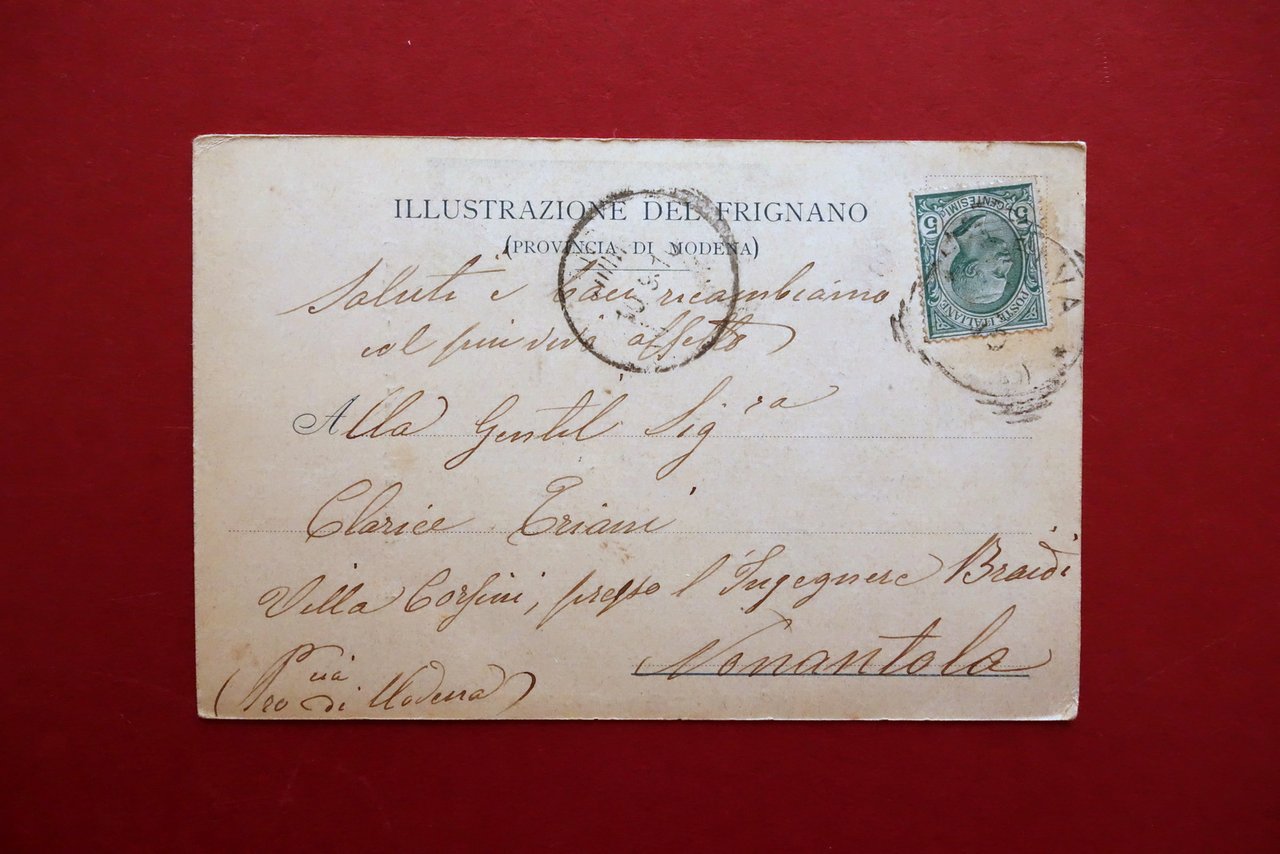 ILLUSTRAZIONE DEL FRIGNANO
(PROVINCIA DI MODENA)
Saluti e baci ricambiamo
col più vivo affetto
Alla Gentil Sig.ra
Clarice Triani
Villa Corsini, presso l'Ingegnere Braidi
Nonantola
(Pro.cia di Modena)
5 CENTESIMI 5
POSTE ITALIANE